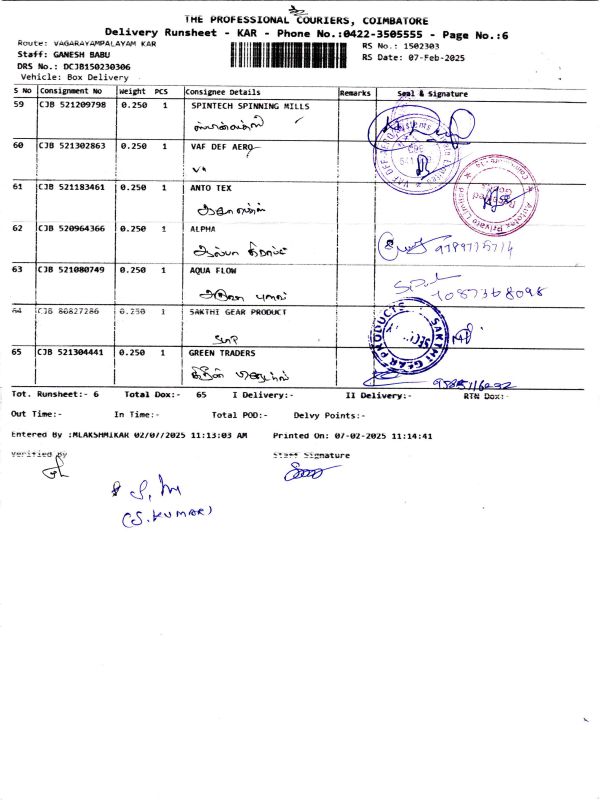 THE PROFESSIONAL COURIERS, COIMBATORE
Delivery Runsheet - KAR - Phone No.:0422-3505555 - Page No.:6
Route: VAGARAYAMPALAYAM KAR
RS No.: 1502303
Staff: GANESH BABU
RS Date: 07-Feb-2025
DRS No.: DCJB150230306
Vehicle: Box Delivery
S No Consignment No Weight PCS Consignee Details Remarks Seal & Signature
59 CJB 521209798 0.250 1 SPINTECH SPINNING MILLS
60 CJB 521302863 0.250 1 VAF DEF AERO
61 CJB 521183461 0.250 1 ANTO TEX
62 CJB 520964366 0.250 1 ALPHA
63 CJB 521080749 0.250 1 AQUA FLOW
64 CJB 80827286 0.250 1 SAKTHI GEAR PRODUCT
SAKTHI GEAR PRODUCTS
65 CJB 521304441 0.250 1 GREEN TRADERS
Tot. Runsheet:- 6 Total Dox:- 65 I Delivery:- II Delivery:- RTN Dox:-
Out Time:- In Time:- Total POD:- Delvy Points:-
Entered By :MLAKSHMIKAR 02/07/2025 11:13:03 AM Printed On: 07-02-2025 11:14:41
Verified By Staff Signature
(S.KUMAR)